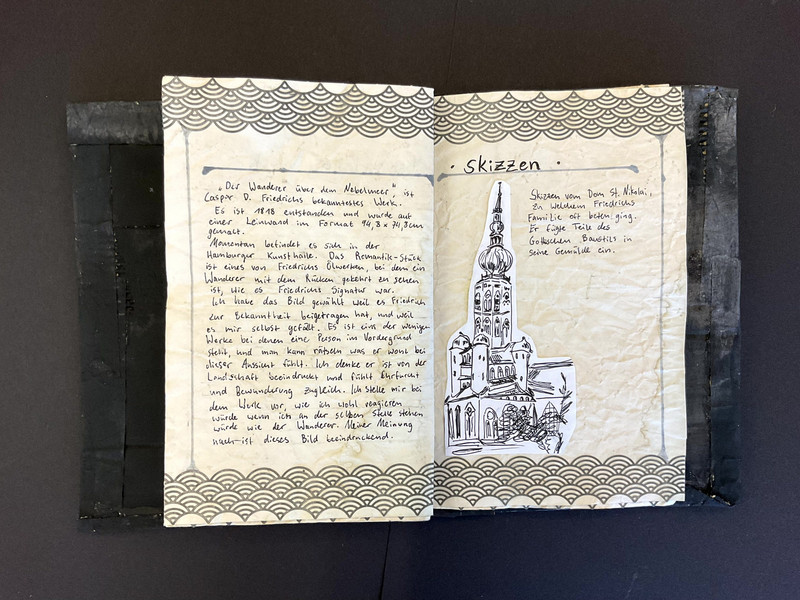 „Der Wanderer über dem Nebelmeer", ist
Caspar D. Friedrichs bekanntestes Werk.
Es ist 1818 entstanden und wurde auf
einer Leinwand im Format 94,8 x 74,8cm
gemalt.
Momentan befindet es sich in der
Hamburger Kunsthalle. Das Romantik-Stück
ist eines von Friedrichs Ölwerken, bei dem ein
Wanderer mit dem Rücken gekehrt zu sehen
ist, wie es Friedrichs Signatur war.
Ich habe das Bild gewählt weil es Friedrich
zur Bekanntheit beigetragen hat, und weil
es mir selbst gefällt. Es ist eins der wenigen
Werke bei denen eine Person im Vordergrund
steht, und man kann rätseln was er wohl bei
dieser Aussicht fühlt. Ich denke er ist von der
Landschaft beeindruckt und fühlt Ehrfurcht
und Bewunderung zugleich. Ich stelle mir bei
dem Werk vor, wie ich wohl reagieren
würde wenn ich an der selben Stelle stehen
würde wie der Wanderer. Meiner Meinung
nach ist dieses Bild beeindruckend.
· Skizzen ·
Skizzen vom Dom St. Nikolai,
zu welchem Friedrichs
Familie oft beten ging.
Er fügte Teile des
Gotischen Baustils in
seine Gemälde ein.